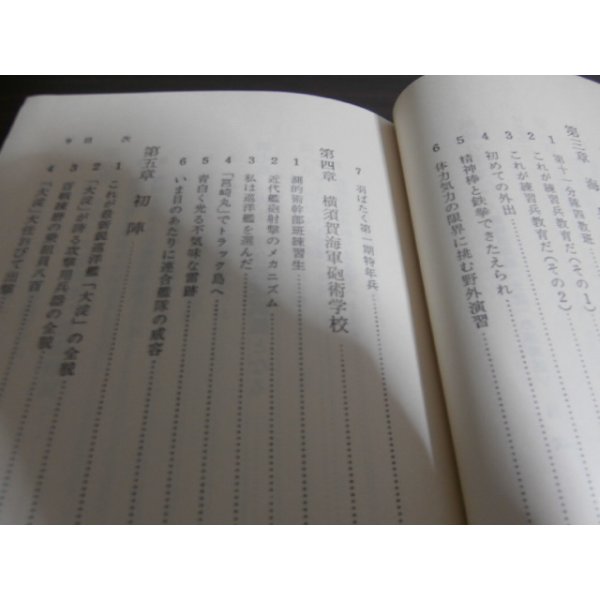 第三章 海
1 第十一分隊四教班
これが練習兵教育だ(その1)
2 これが練習兵教育だ(その2)
3 初めての外出
4 精神棒と鉄拳できたえられ
5
6 体力気力の限界に挑む野外演習
7 羽ばたく第一期特年兵
第四章 横須賀海軍砲術学校
1 測的術幹部班練習生
2 近代艦砲射撃のメカニズム
3 私は巡洋艦を選んだ
4 「宮崎丸」でトラック島へ
5 青白く光る不気味な雷跡
6 いま目のあたりに連合艦隊の威容
第五章 初陣
1 これが最新鋭巡洋艦「大淀」
2 「大淀」が誇る攻撃用兵器の全貌
3 百戦練磨の乗組員八百
4 「大淀」
目次